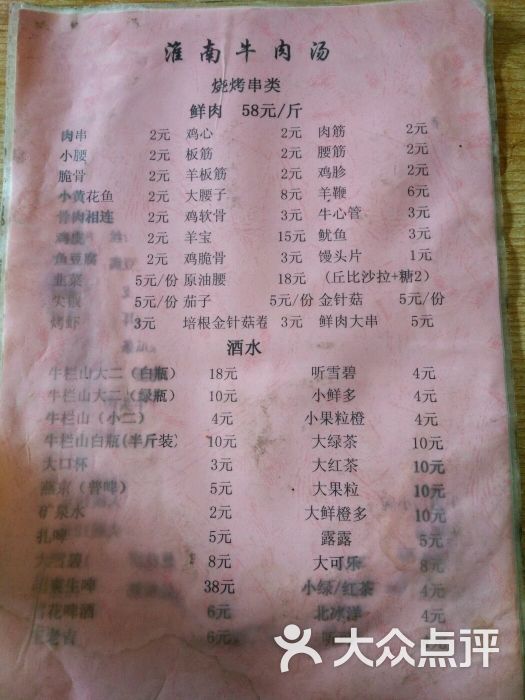 淮南牛肉汤
烧烤串类
鲜肉 58元/斤
肉串 2元 鸡心 2元 肉筋 2元
小腰 2元 板筋 2元 腰筋 2元
脆骨 2元 羊板筋 2元 鸡胗 2元
小黄花鱼 2元 大腰子 8元 羊鞭 6元
骨肉相连 2元 鸡软骨 3元 牛心管 3元
鸡皮 2元 羊宝 15元 鱿鱼 3元
鱼豆腐 2元 鸡脆骨 3元 馒头片 1元
韭菜 5元/份 原油腰 18元 (丘比沙拉+糖2)
5元/份 茄子 5元/份 金针菇 5元/份
烤虾 3元 培根金针菇卷 3元 鲜肉大串 5元
酒水
牛栏山大二(白瓶) 18元 听雪碧 4元
牛栏山大二(绿瓶) 10元 小鲜多 4元
牛栏山(小二) 4元 小果粒橙 4元
牛栏山白瓶(半斤装) 10元 大绿茶 10元
大口杯 3元 大红茶 10元
燕京(普啤) 5元 大果粒 10元
矿泉水 2元 大鲜橙多 10元
扎啤 5元 露露 5元
大雪碧 8元 大可乐 8元
生啤 38元 小绿/红茶 4元
花啤酒 6元 北冰洋 4元
老吉 6元 听 4元
大众点评